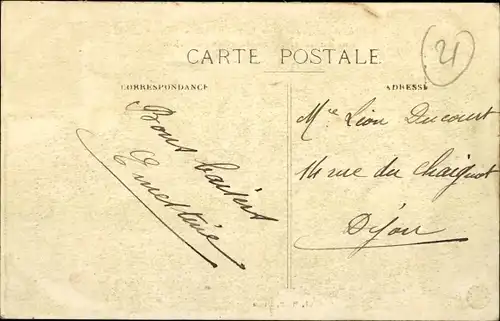 21
CARTE POSTALE
CORRESPONDANCE
ADRESSE
Bons baisers
Emettine
Mlle Léon Ducourt
14 rue du Chaignot
Dijon